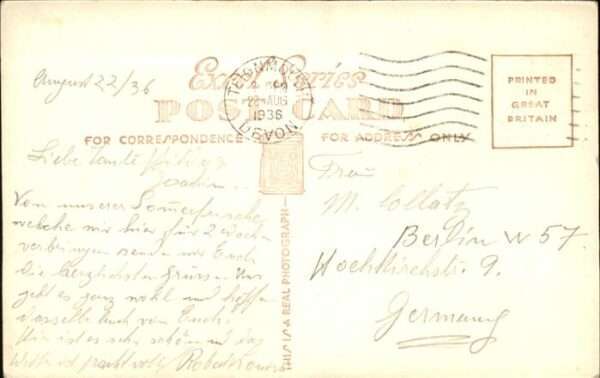 August 22/36
Excel Series
POST CARD
FOR CORRESPONDENCE
FOR ADDRESS ONLY
TEIGNMOUTH
22 AUG
1936
DEVON
PRINTED
IN
GREAT
BRITAIN
THIS IS A REAL PHOTOGRAPH
Liebe Tante
Von unserer Sommerfrische,
welche wir hier für 2 Woch.
verbringen senden wir Euch
die herzlichsten Grüsse. Uns
geht es ganz wohl und hoffen
dasselbe auch von Euch.
Hier ist es sehr schön und das
Wetter ist prachtvoll. Robert
Frau
M. Collatz
Berlin W 57.
Hochkirchstr. 9.
Germany